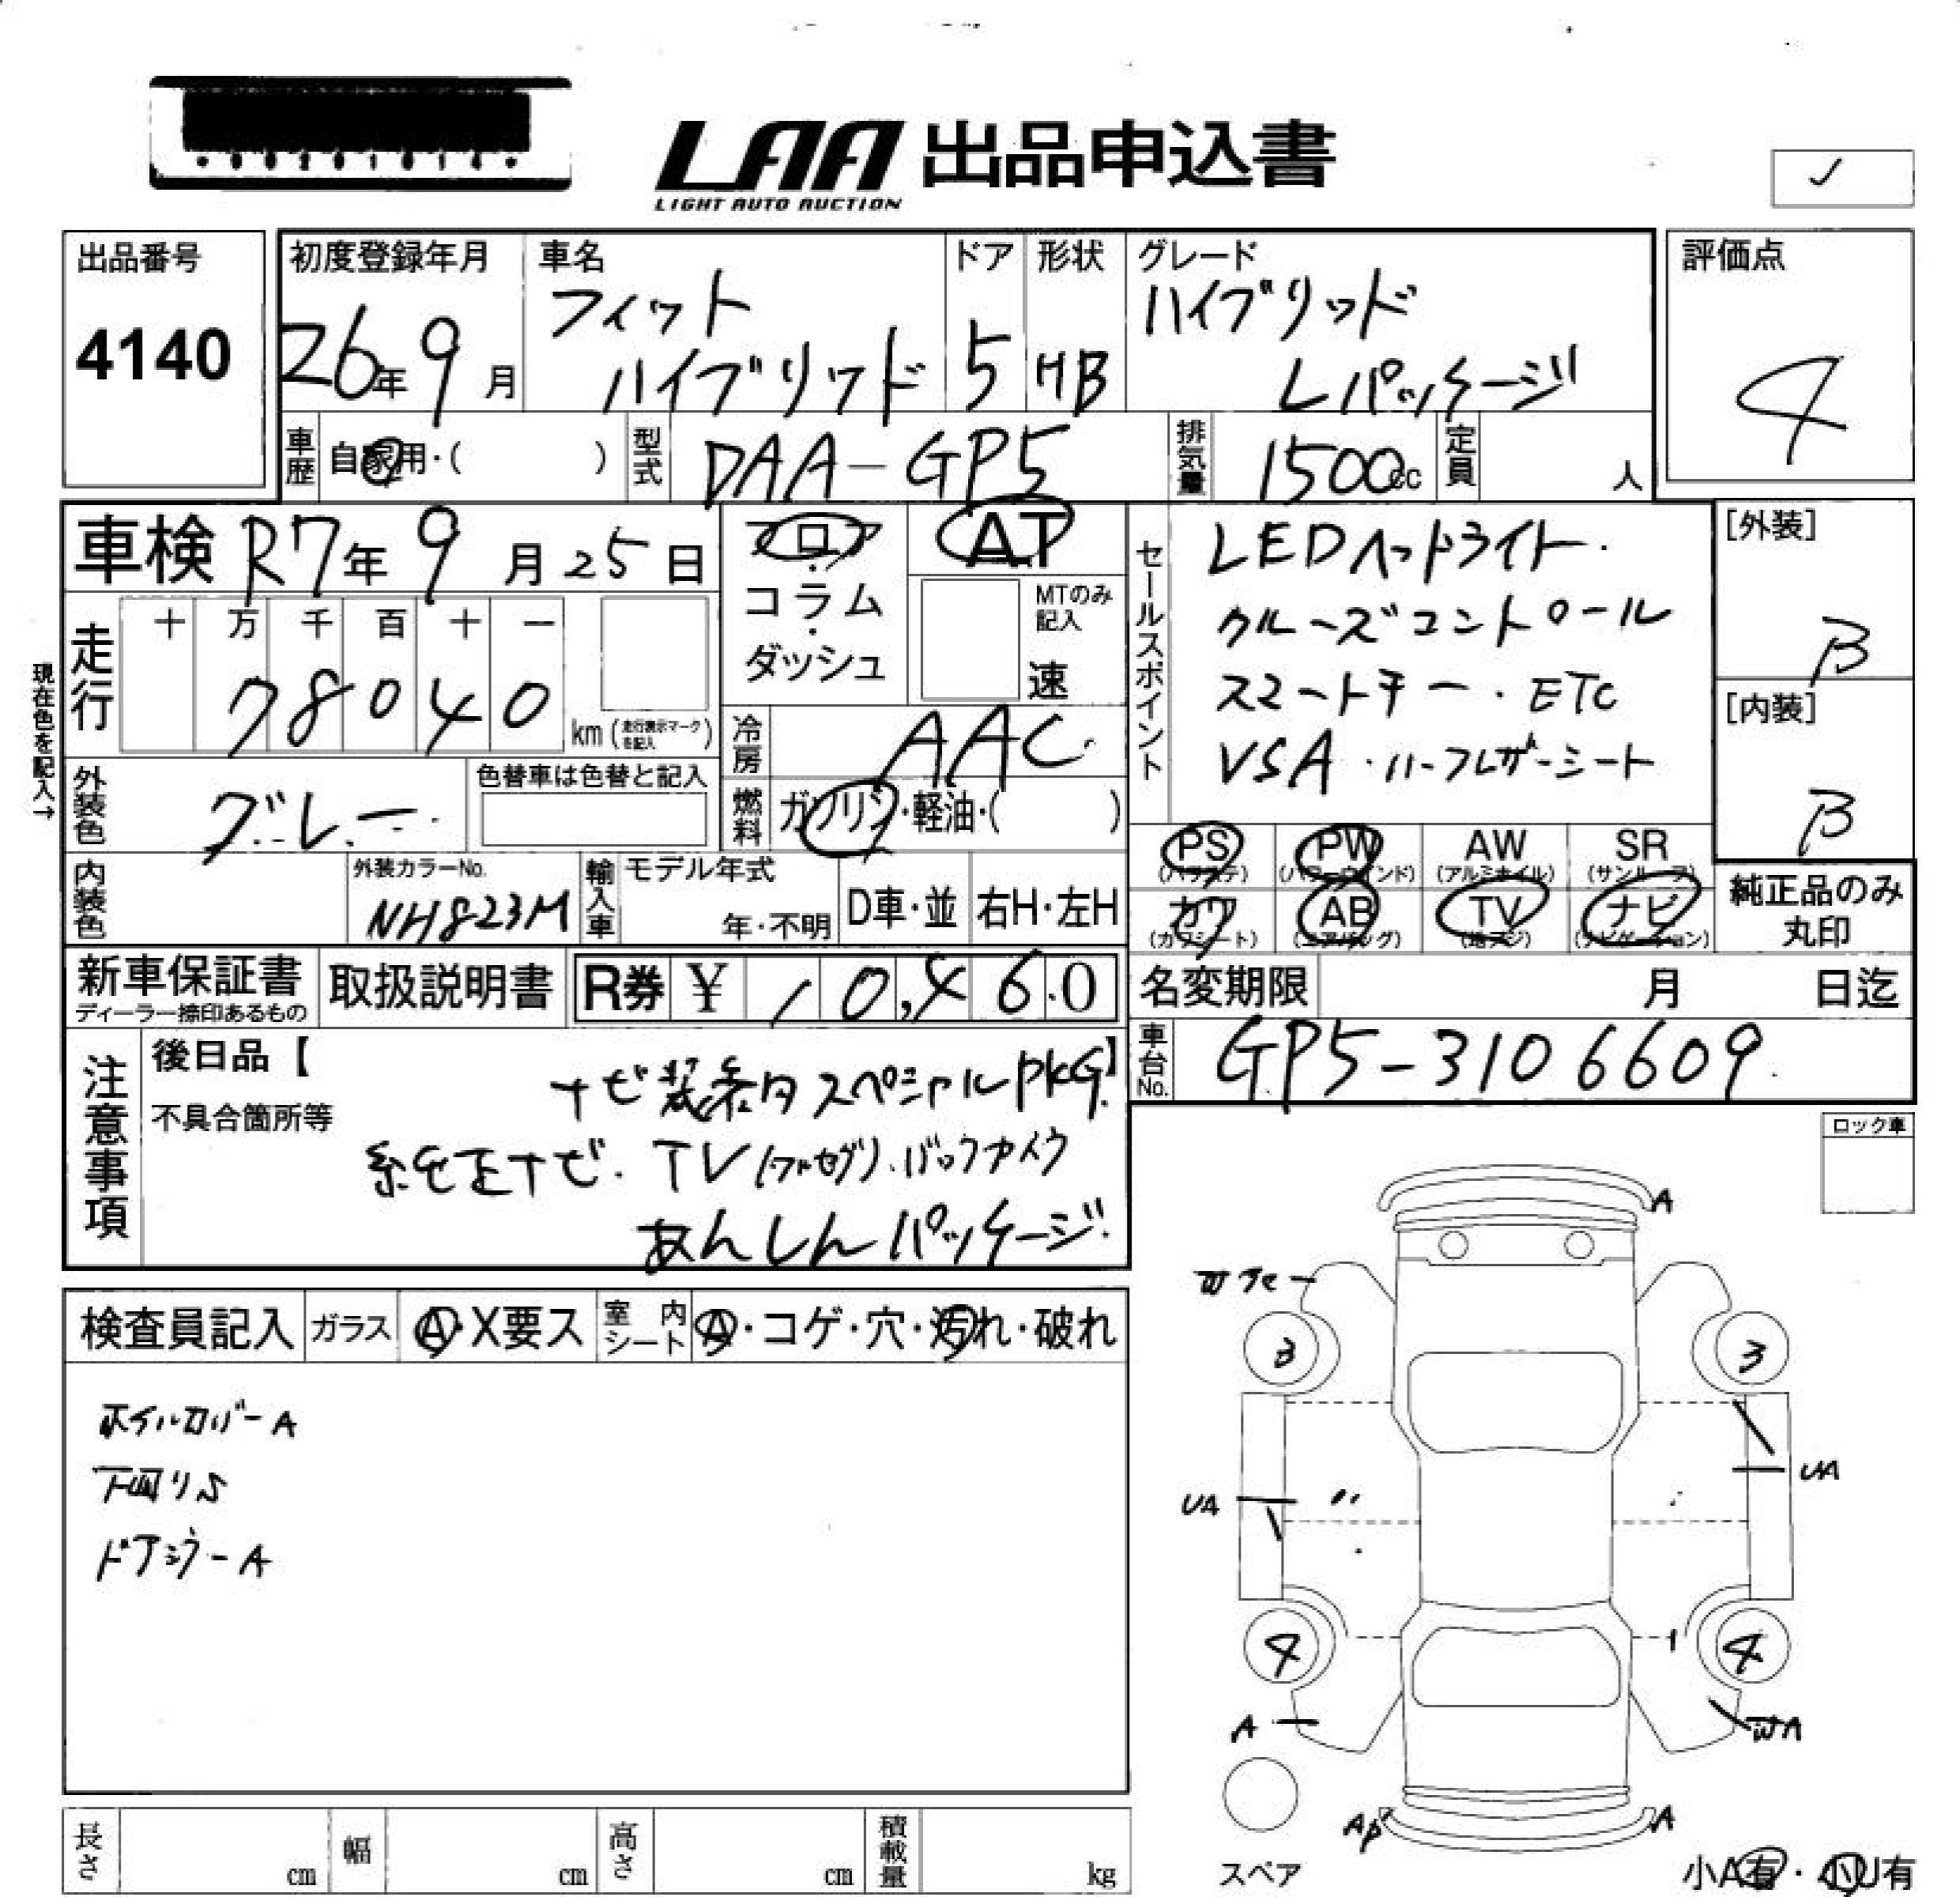 LAA 出品申込書
LIGHT AUTO AUCTION
✓
出品番号
4140
初度登録年月
26年9月
車名
フィット
ハイブリッド
ドア
5
形状
HB
グレード
ハイブリッド
Lパッケージ
評価点
4
車歴
自家用・( )
型式
DAA-GP5
排気量
1500cc
定員
人
車検 R7年9月25日
フロア
・
コラム
・
ダッシュ
AT
MTのみ
記入
速
セールスポイント
LEDヘッドライト・
クルーズコントロール
スマートキー・ETC
VSA・ハーフレザーシート
[外装]
B
[内装]
B
現在色を記入→
走行
十 万 千 百 十 一
78040
km (走行表示マークを記入)
冷房
AAC
外装色
グレー
色替車は色替と記入
燃料
ガソリン・軽油・( )
PS
(パワステ)
PW
(パワーウインド)
AW
(アルミホイル)
SR
(サンルーフ)
カワ
(カワシート)
AB
(エアバッグ)
TV
(地デジ)
ナビ
(ナビゲーション)
純正品のみ
丸印
内装色
外装カラーNo.
NH823M
輸入車
モデル年式
年・不明
D車・並
右H・左H
新車保証書
ディーラー捺印あるもの
取扱説明書
R券 ¥ 10,460
名変期限
月 日迄
車台No.
GP5-3106609
注意事項
後日品【 】
ナビ装着用スペシャルPKG
不具合箇所等
純正ナビ・TV(フルセグ)、バックカメラ
あんしんパッケージ
ロック車
検査員記入
ガラス
A・X要ス
室内シート
A・コゲ・穴・汚れ・破れ
ホイルカバーA
下回りS
ドアミラーA
A
3
3
UA
UA
4
4
A
WA
Ap
A
スペア
小A有・小U有
長さ
cm
幅
cm
高さ
cm
積載量
kg